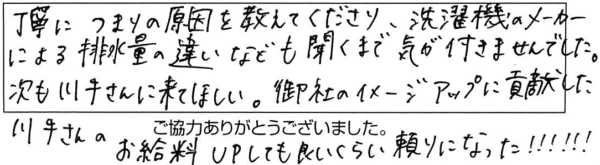 丁寧に つまりの原因を教えてくださり、洗濯機のメーカー
による排水量の違いなども聞くまで気が付きませんでした。
次も川手さんに来てほしい。御社のイメージアップに貢献した
川手さんの
ご協力ありがとうございました。
お給料 UPしても良いくらい頼りになった!!!!!!